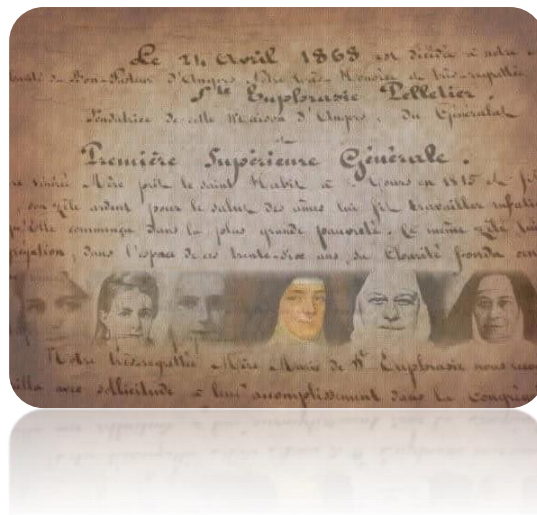 Le 24 Avril 1868 est décédée à notre
de Bon-Pasteur d'Angers Notre très Honorée et très-regrettée
Ste Euphrasie Pelletier.
Fondatrice de cette Maison d'Angers, du Généralat
et
Première Supérieure Générale.
vénérée Mère prit le saint Habit à Tours en 1815 et
son zèle ardent pour le salut des âmes lui fit travailler
qu'elle commença dans la plus grande pauvreté. Ce même zèle lui
dans l'espace de ces trente-six ans, sa Charité fonda
Notre très-regrettée Mère Marie de Ste Euphrasie nous
avec sollicitude à leur accomplissement dans la